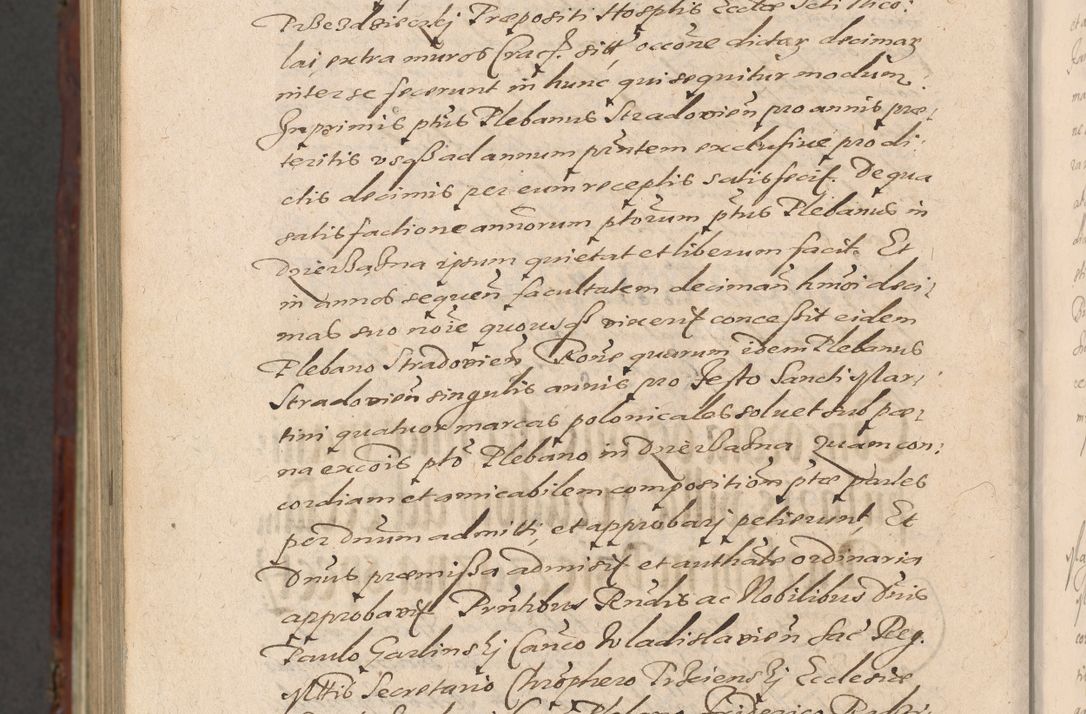 Præpositi Hosplis Eccłæ Scti Nico:
lai extra muros Cracł. sitt occōne dictar decimar
inter se fecerunt in hunc qui sequitur modum
Inprimis ptūs Plebanus Stradovieñ pro annis præ:
teritis usqß ad annum prntem exclusive pro di:
ctis decimis per eum receptis satisfecit. De qua
satisfactione annorum ptorum ptūs Plebanus in
Dzierbasna ipsum quietat et liberum facit. Et
in annos sequeñ facultatem decimañ hmōi deci:
mas suo nōie quousqß vixerit concessit eidem
Plebano Stradovieñ Rone quarum idem Plebanus
Stradovieñ singulis annis pro Festo Sancti Mar:
tini quatuor marcas polonicales soluet sub pæ:
na excōis ptō Plebano in Dzierbasna Quam con:
cordiam et amicabilem compositioñ ptæ partes
per Dnum admitti, et approbarj petierunt Et
Dnus præmissa admisit et authate ordinaria
approbavit Prntibus Rendis ac Nobilibus Dnis
Paulo Garlinskj Canco Wladislavieñ Sac Reg.
Mttis Secretario Chrophero Trzcienskj Ecclesiæ